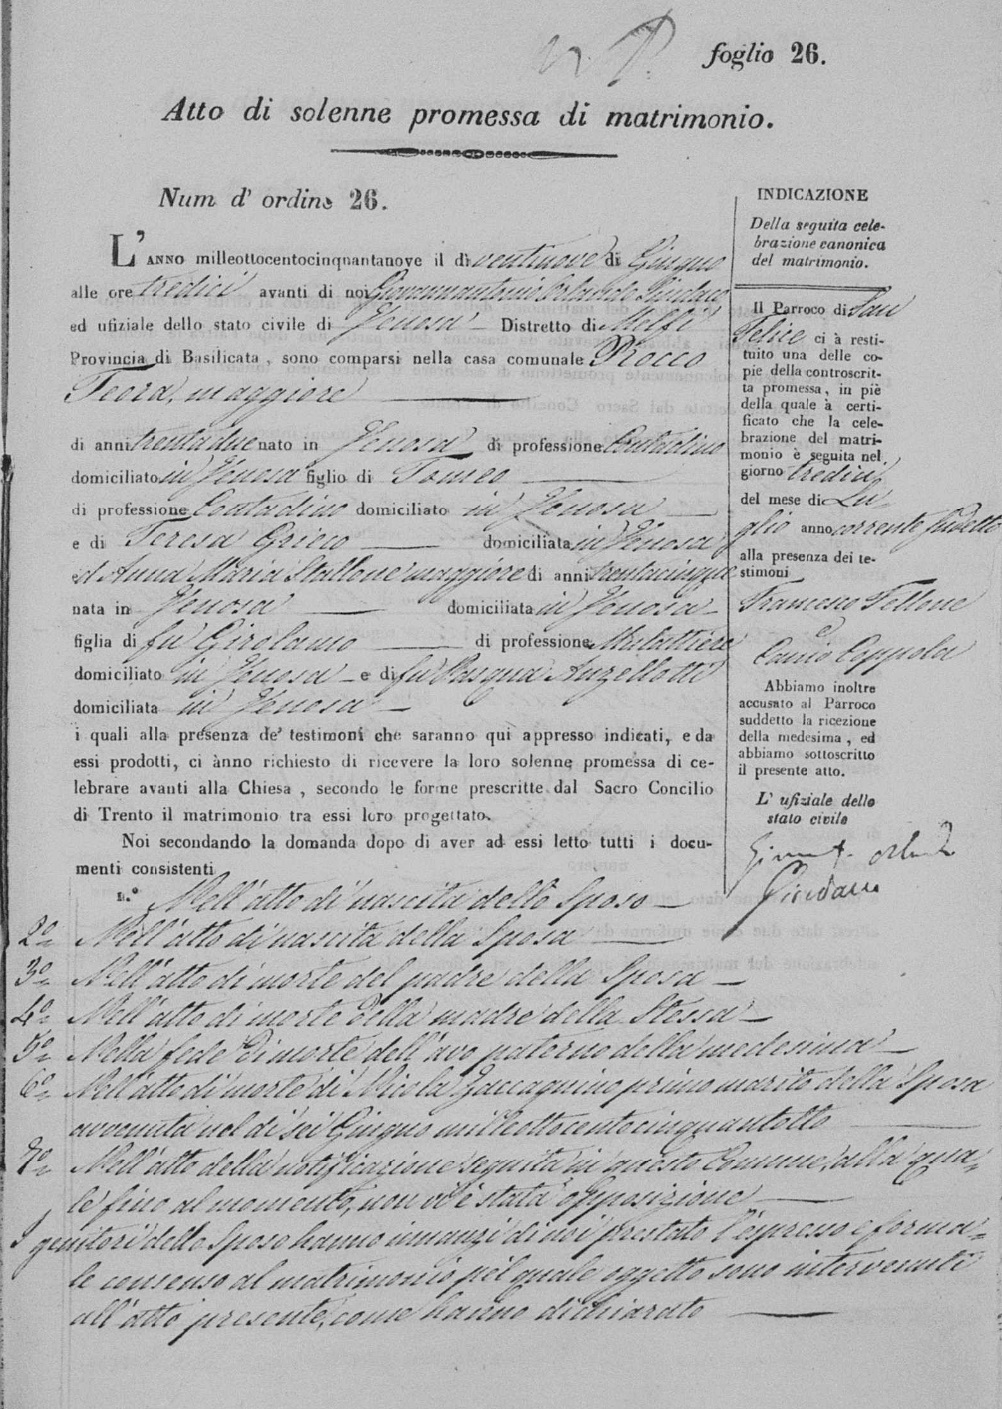 foglio 26.
Atto di solenne promessa di matrimonio.
Num d' ordine 26.
L'ANNO milleottocentocinquantanove il di ventinove di Giugno
alle ore tredici avanti di noi Giovannantonio Orlando Sindaco
ed ufiziale dello stato civile di Venosa Distretto di Melfi
Provincia di Basilicata, sono comparsi nella casa comunale Rocco
Teora, maggiore
di anni trentadue nato in Venosa di professione Contadino
domiciliato in Venosa figlio di Tomeo
di professione Contadino domiciliato in Venosa
e di Teresa Grieco domiciliata in Venosa
ed Anna Maria Stallone maggiore di anni trentacinque
nata in Venosa domiciliata in Venosa
figlia di fu Girolamo di professione Mulattiere
domiciliato in Venosa e di fu Pasqua Anzellotti
domiciliata in Venosa
i quali alla presenza de' testimoni che saranno qui appresso indicati, e da
essi prodotti, ci ànno richiesto di ricevere la loro solenne promessa di ce-
lebrare avanti alla Chiesa, secondo le forme prescritte dal Sacro Concilio
di Trento il matrimonio tra essi loro progettato.
Noi secondando la domanda dopo di aver ad essi letto tutti i docu-
menti consistenti
1.° Nell'atto di nascita dello Sposo
2° Nell'atto di nascita della Sposa
3° Nell'atto di morte del padre della Sposa
4° Nell'atto di morte della madre della Stessa
5° Nella fede di morte dell'avo paterno della medesima
6° Nell'atto di morte di Nicola Zaccagnino primo marito della Sposa
avvenuta nel di sei Giugno milleottocentocinquantotto
7° Nell'atto della notificazione seguita in questo Comune, alla qua-
le fino al momento, non vi è stata opposizione
I genitori dello Sposo hanno innanzi di noi prestato l'espresso e forma-
le consenso al matrimonio pel quale oggetto sono intervenuti
all'atto presente, come hanno dichiarato
INDICAZIONE
Della seguita cele-
brazione canonica
del matrimonio.
Il Parroco di San
Felice ci à resti-
tuito una delle co-
pie della controscrit-
ta promessa, in piè
della quale à certi-
ficato che la cele-
brazione del matri-
monio è seguita nel
giorno tredici
del mese di Lu
glio anno corrente sudetto
alla presenza dei te-
stimoni
Francesco Tellone
e
Canio Coppola
Abbiamo inoltre
accusato al Parroco
suddetto la ricezione
della medesima, ed
abbiamo sottoscritto
il presente atto.
L' ufiziale dello
stato civile
Orlando
Sindaco